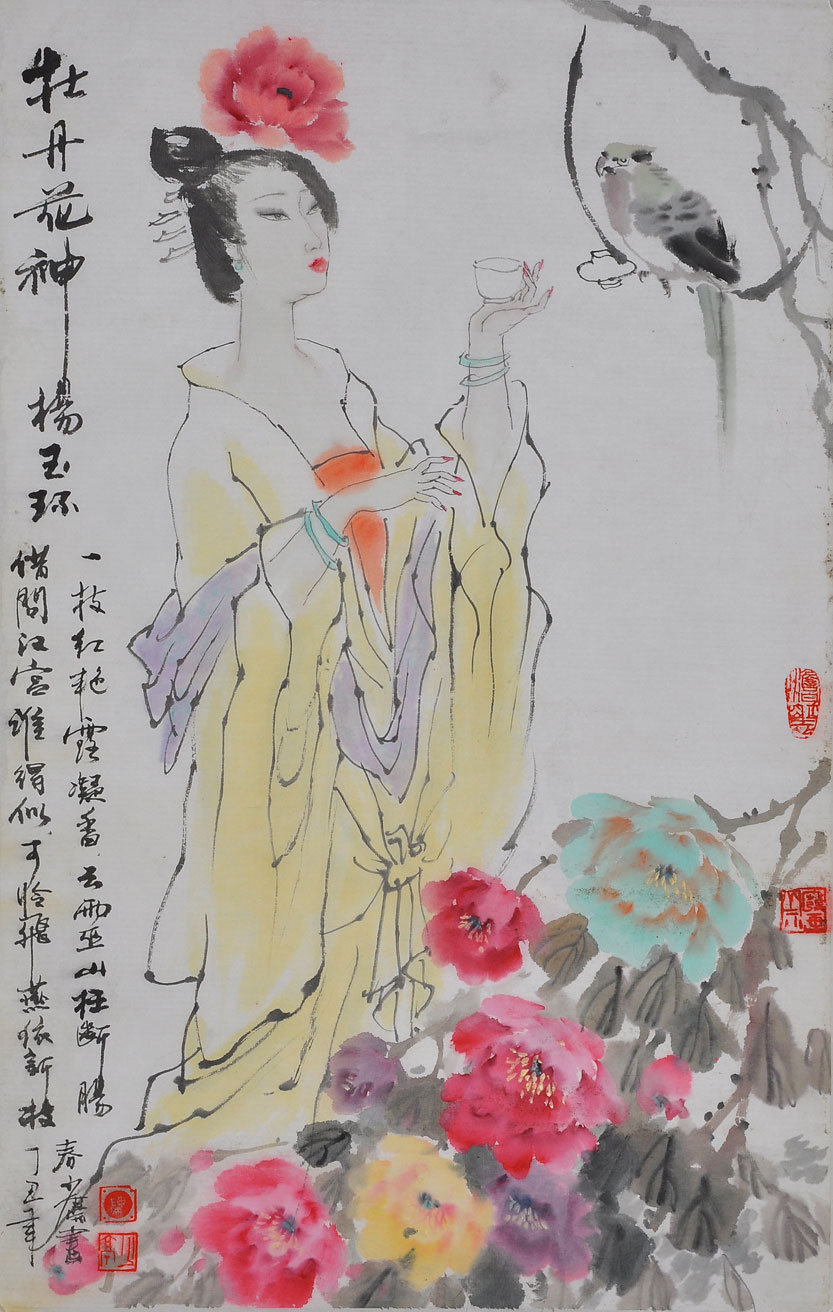 牡丹花神 楊玉环
一枝红艳露凝香云雨巫山枉断腸
借問汉宫谁得似可怜飛燕依新枝
丁丑年
春小 畫